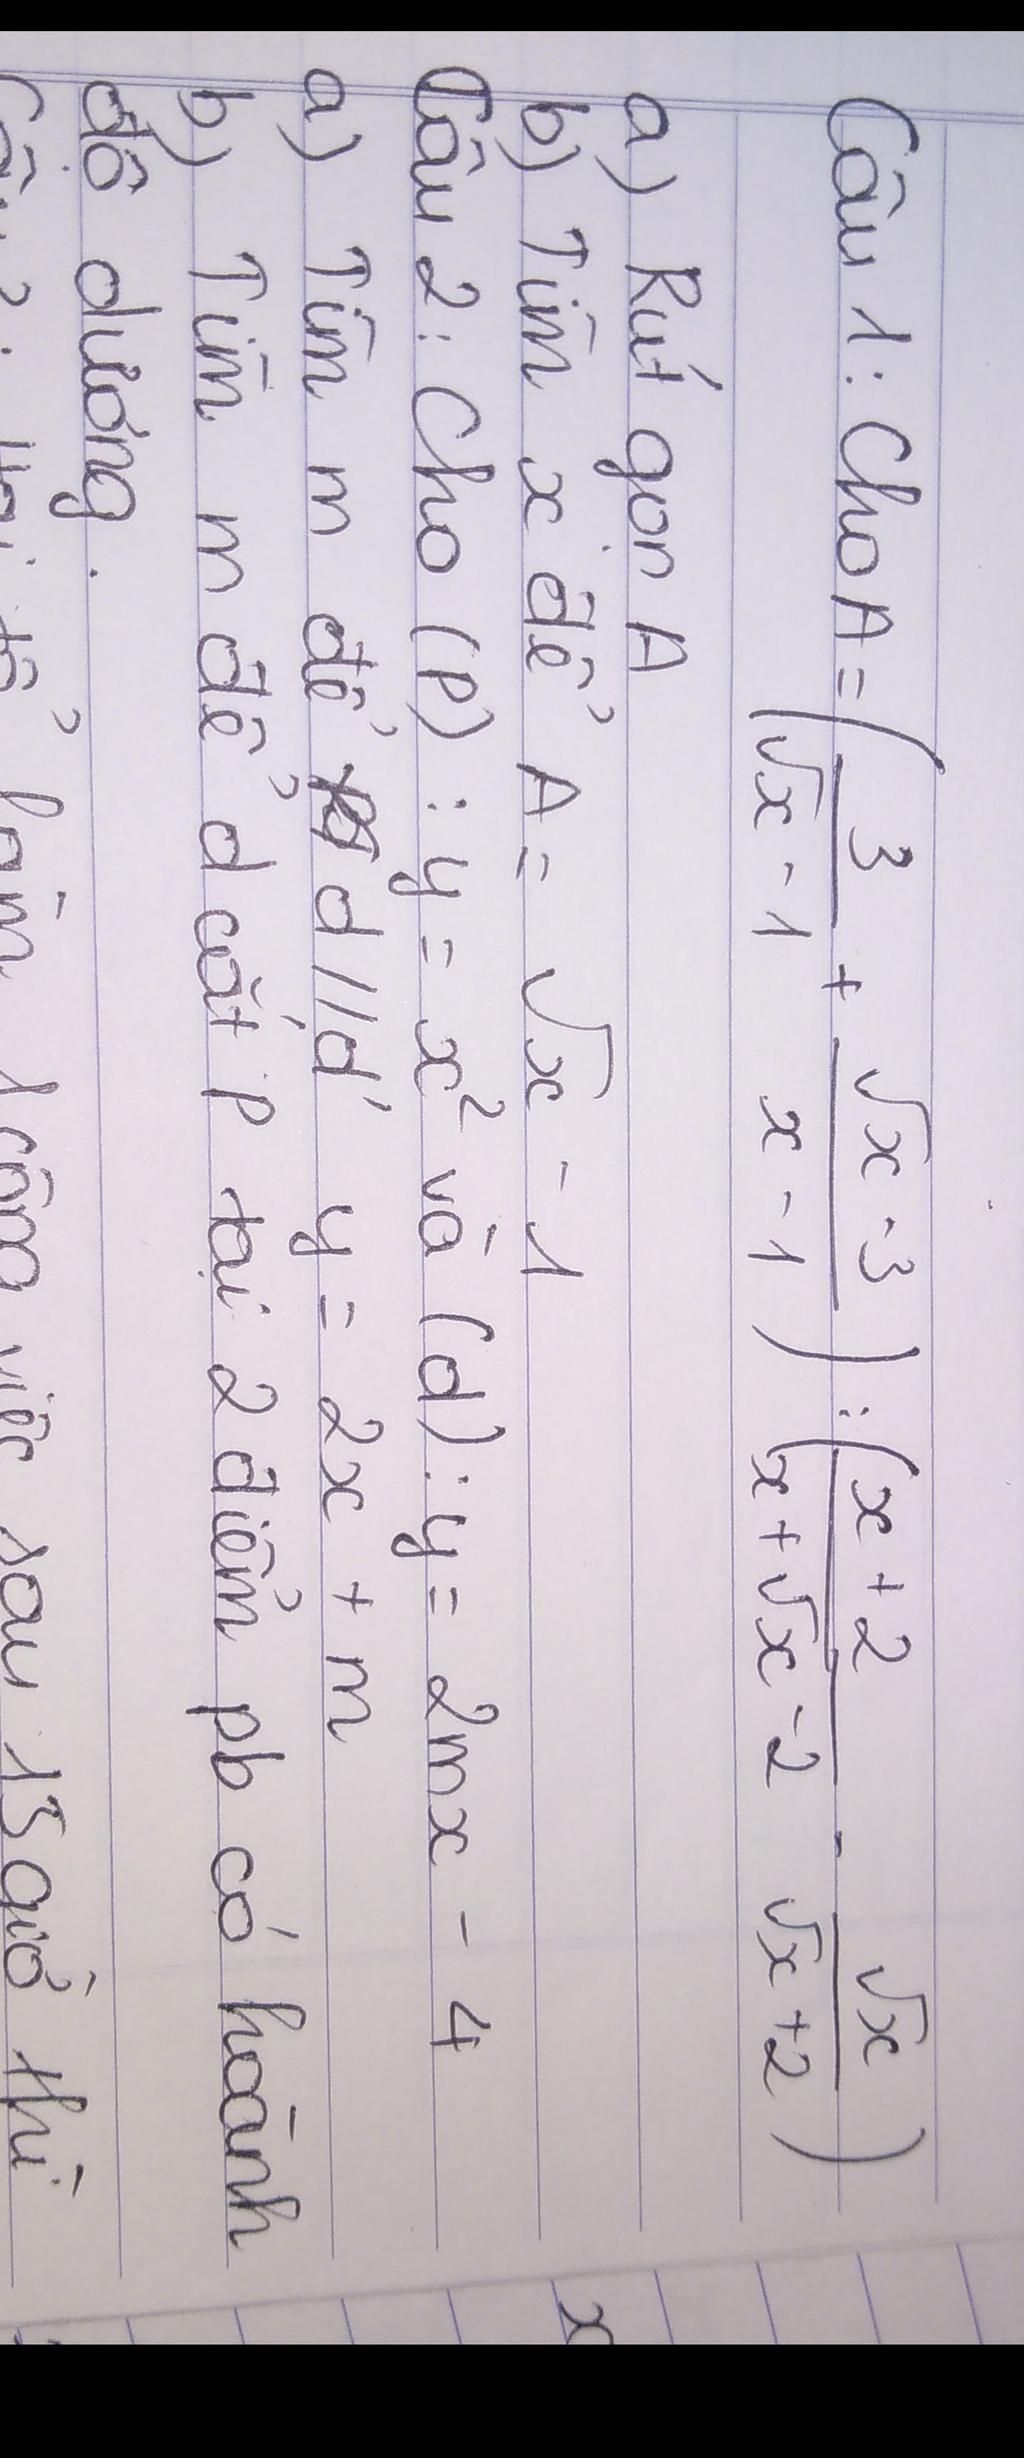 Câu 1: Cho A = ( 3/(√x - 1) + (√x - 3)/(x - 1) ) : ( (x + 2)/(x + √x - 2) - √x/(√x + 2) )
a) Rút gọn A
b) Tìm x để A = √x - 1
Câu 2: Cho (P) : y = x² và (d) : y = 2mx - 4
a) Tìm m để d // d' y = 2x + m
b) Tìm m để d cắt P tại 2 điểm pb có hoành
độ dương.
làm 1 công việc sau 15 giờ thì
x